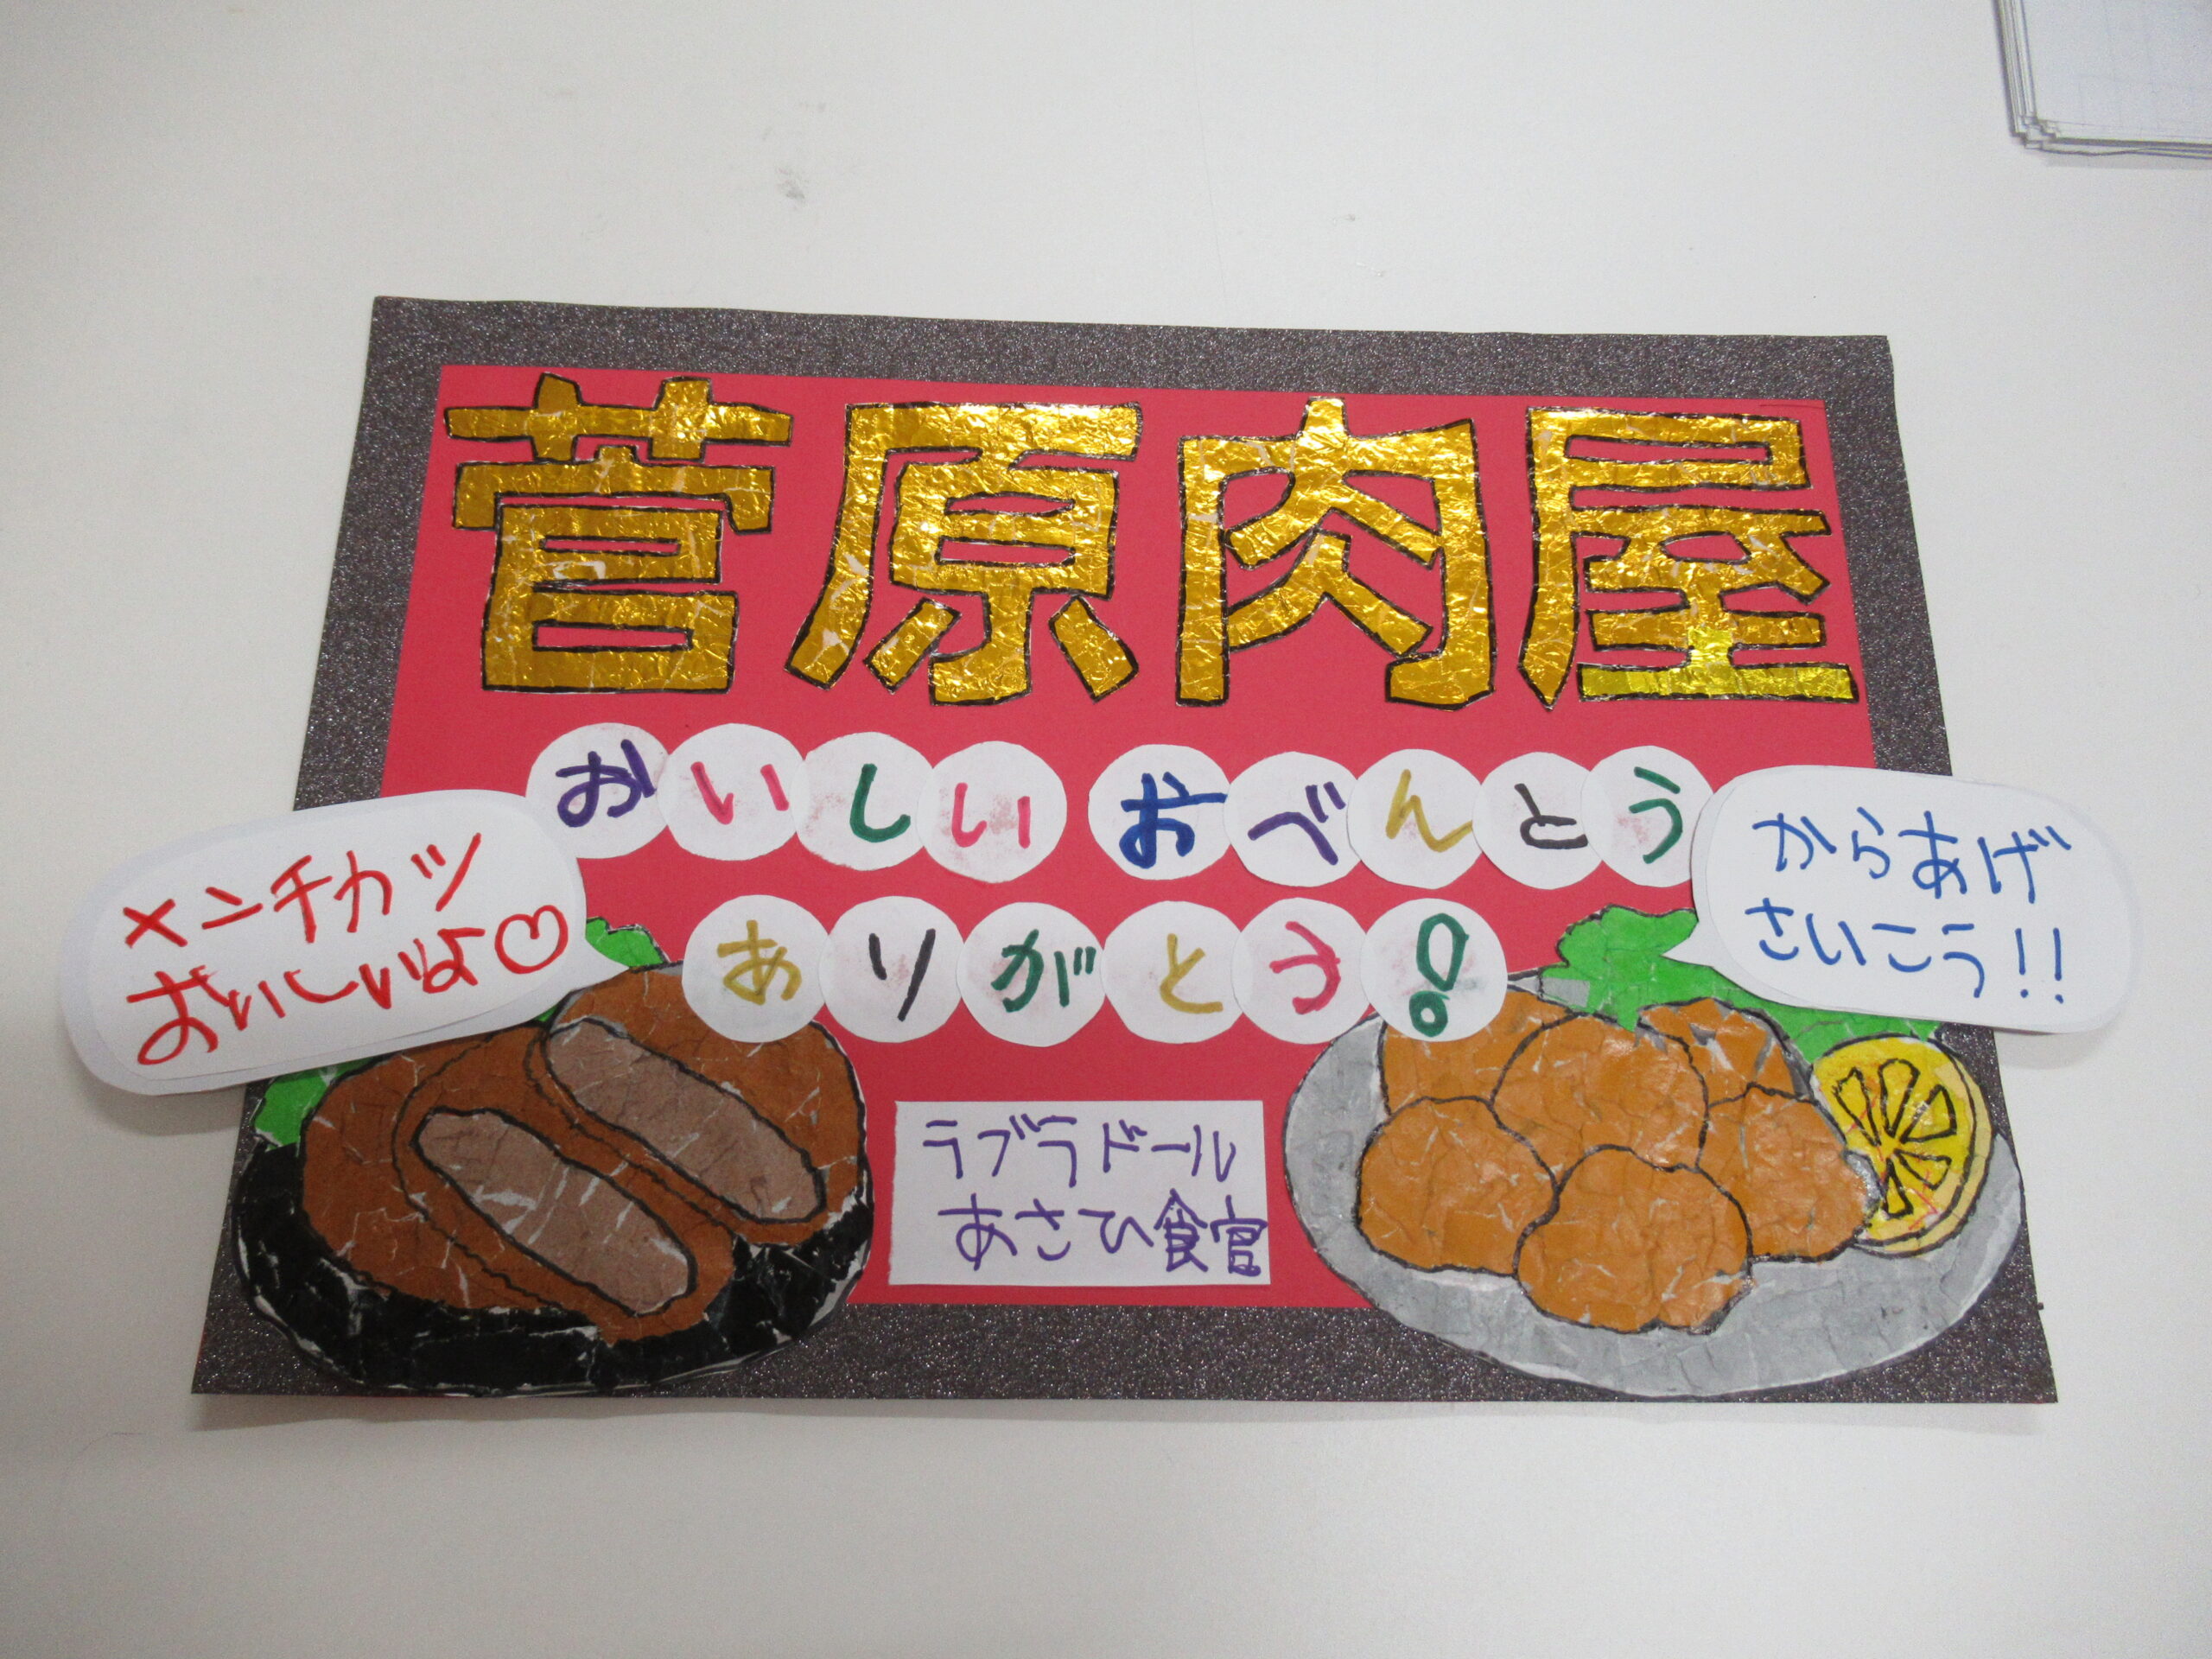 菅原肉屋
おいしい おべんとう
ありがとう!
メンチカツ
おいしいよ♡
からあげ
さいこう!!
ラブラドール
あさひ食官